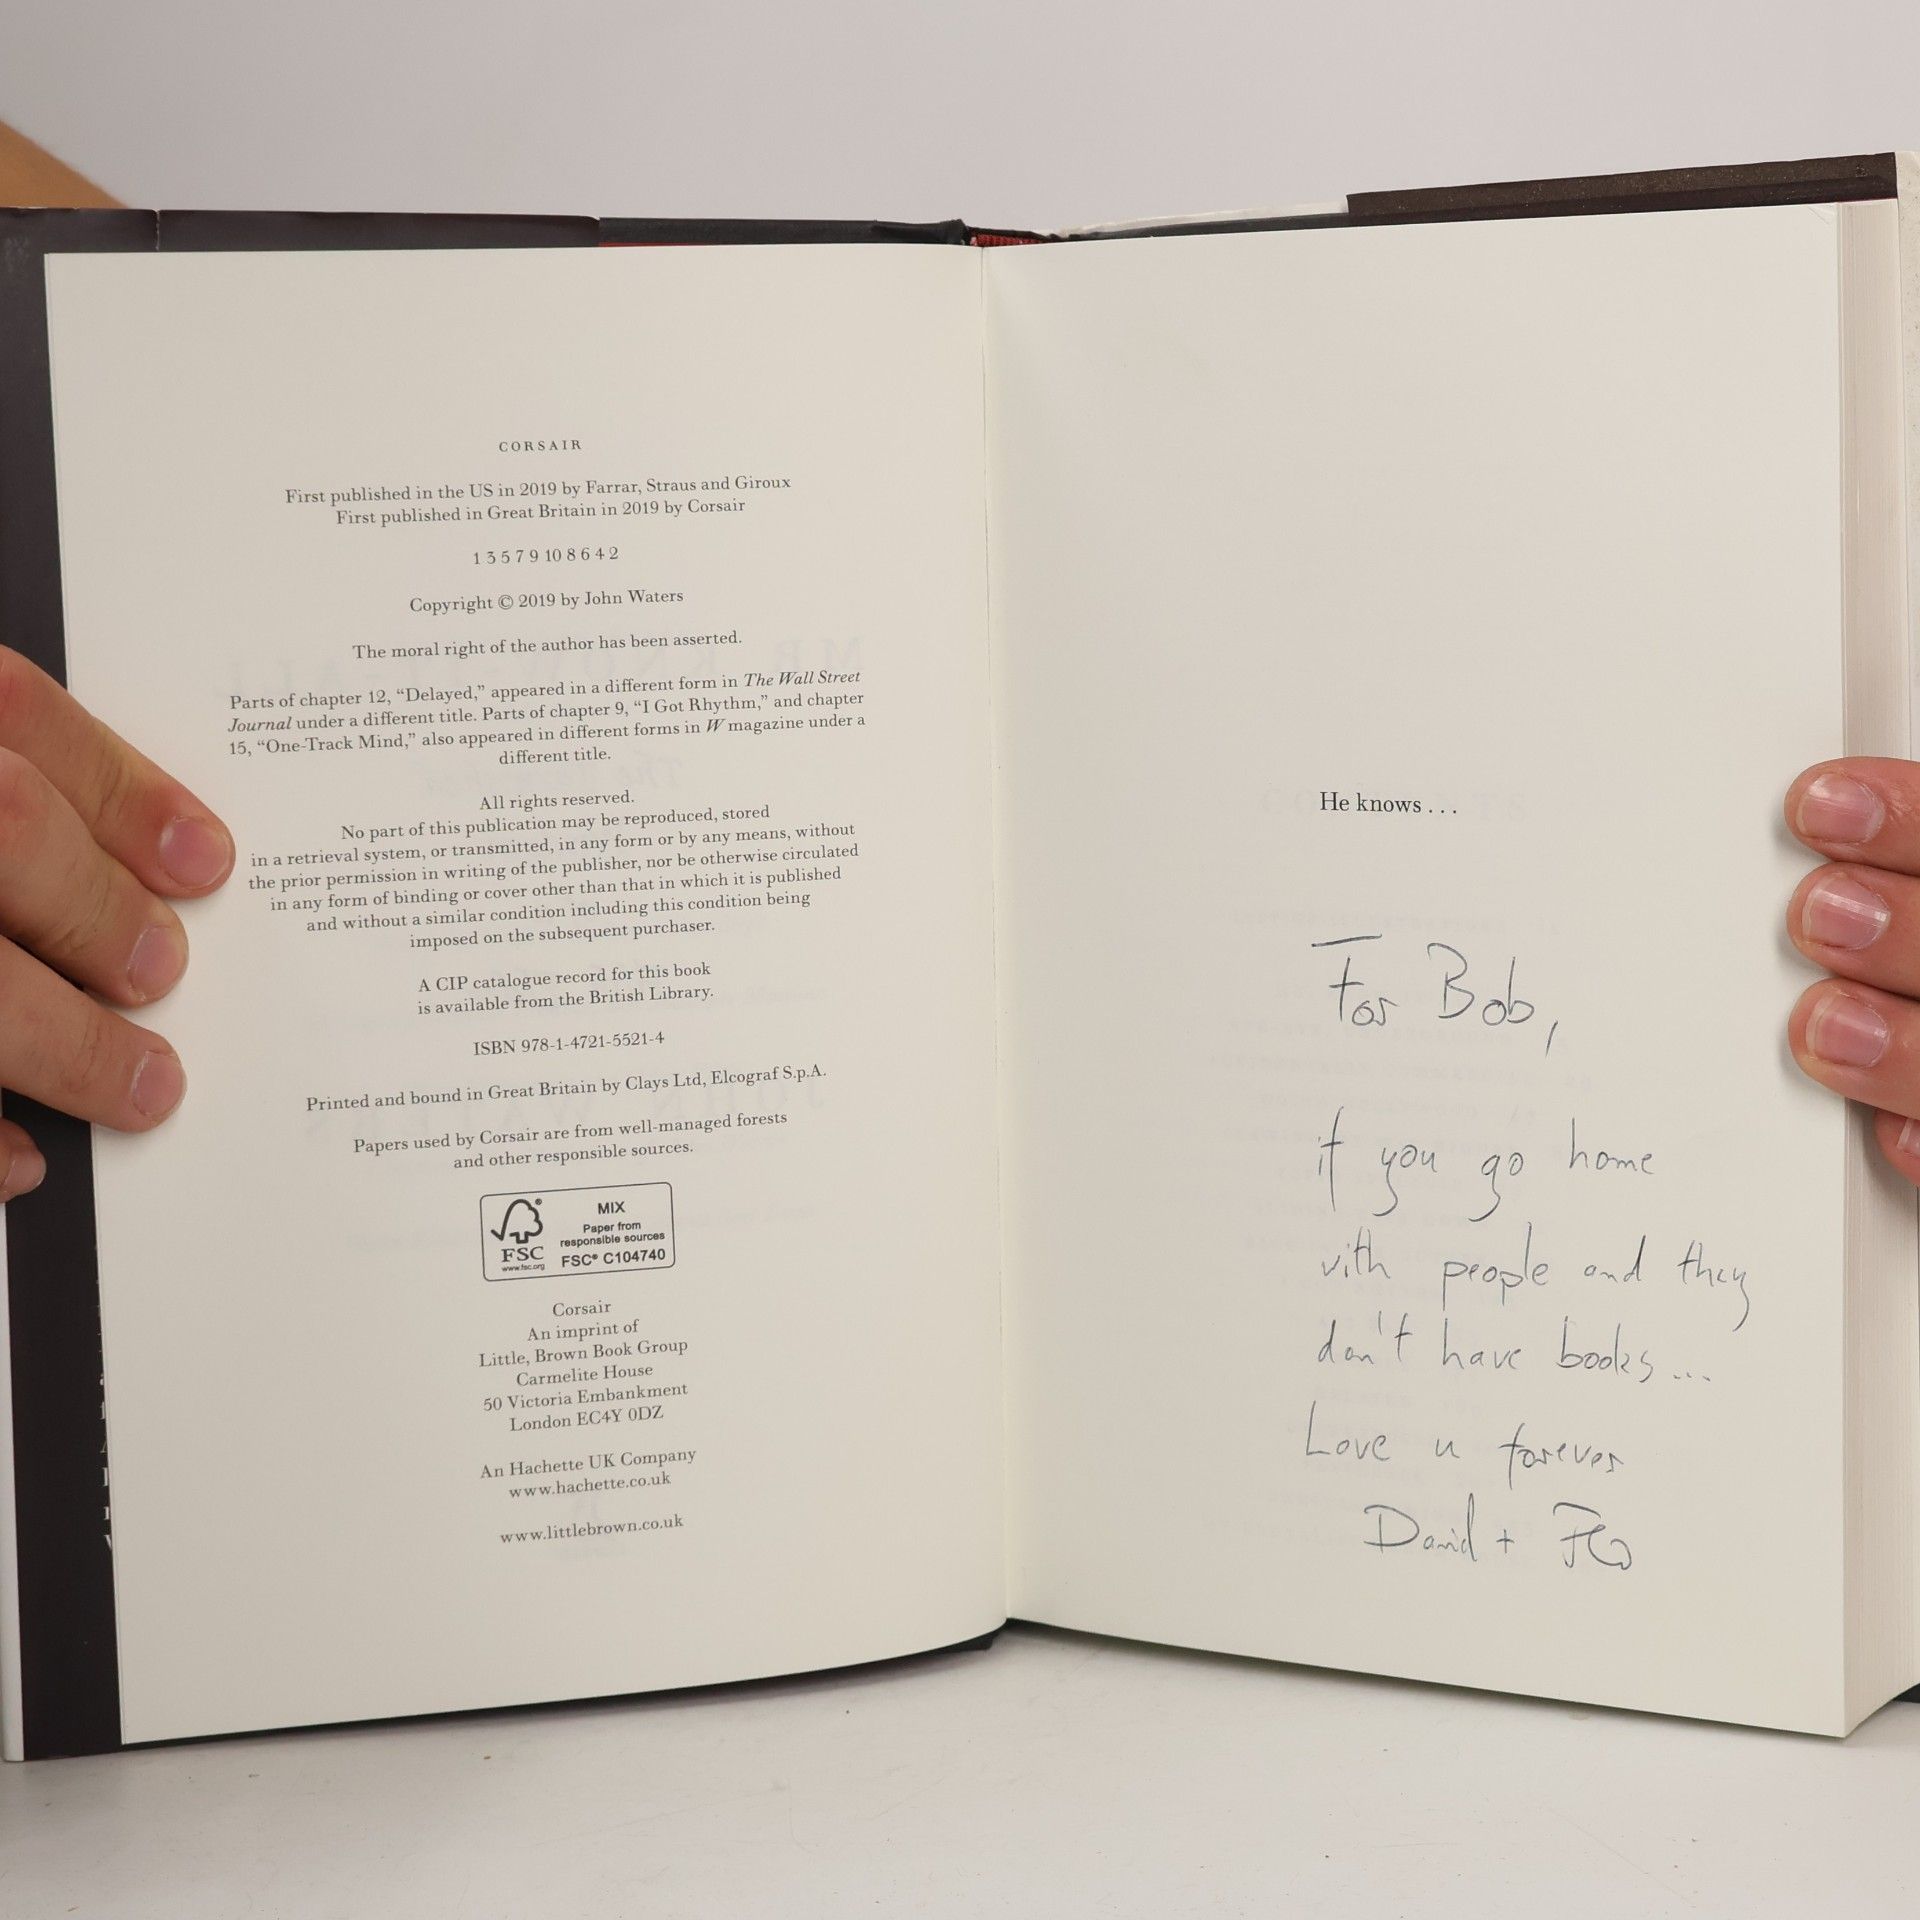 CORSAIR
First published in the US in 2019 by Farrar, Straus and Giroux
First published in Great Britain in 2019 by Corsair
1 3 5 7 9 10 8 6 4 2
Copyright © 2019 by John Waters
The moral right of the author has been asserted.
Parts of chapter 12, “Delayed,” appeared in a different form in The Wall Street
Journal under a different title. Parts of chapter 9, “I Got Rhythm,” and chapter
15, “One-Track Mind,” also appeared in different forms in W magazine under a
different title.
All rights reserved.
No part of this publication may be reproduced, stored
in a retrieval system, or transmitted, in any form or by any means, without
the prior permission in writing of the publisher, nor be otherwise circulated
in any form of binding or cover other than that in which it is published
and without a similar condition including this condition being
imposed on the subsequent purchaser.
A CIP catalogue record for this book
is available from the British Library.
ISBN 978-1-4721-5521-4
Printed and bound in Great Britain by Clays Ltd, Elcograf S.p.A.
Papers used by Corsair are from well-managed forests
and other responsible sources.
FSC
www.fsc.org
MIX
Paper from
responsible sources
FSC® C104740
Corsair
An imprint of
Little, Brown Book Group
Carmelite House
50 Victoria Embankment
London EC4Y 0DZ
An Hachette UK Company
www.hachette.co.uk
www.littlebrown.co.uk
He knows . . .
For Bob,
if you go home
with people and they
don't have books...
Love u forever
David + Flo